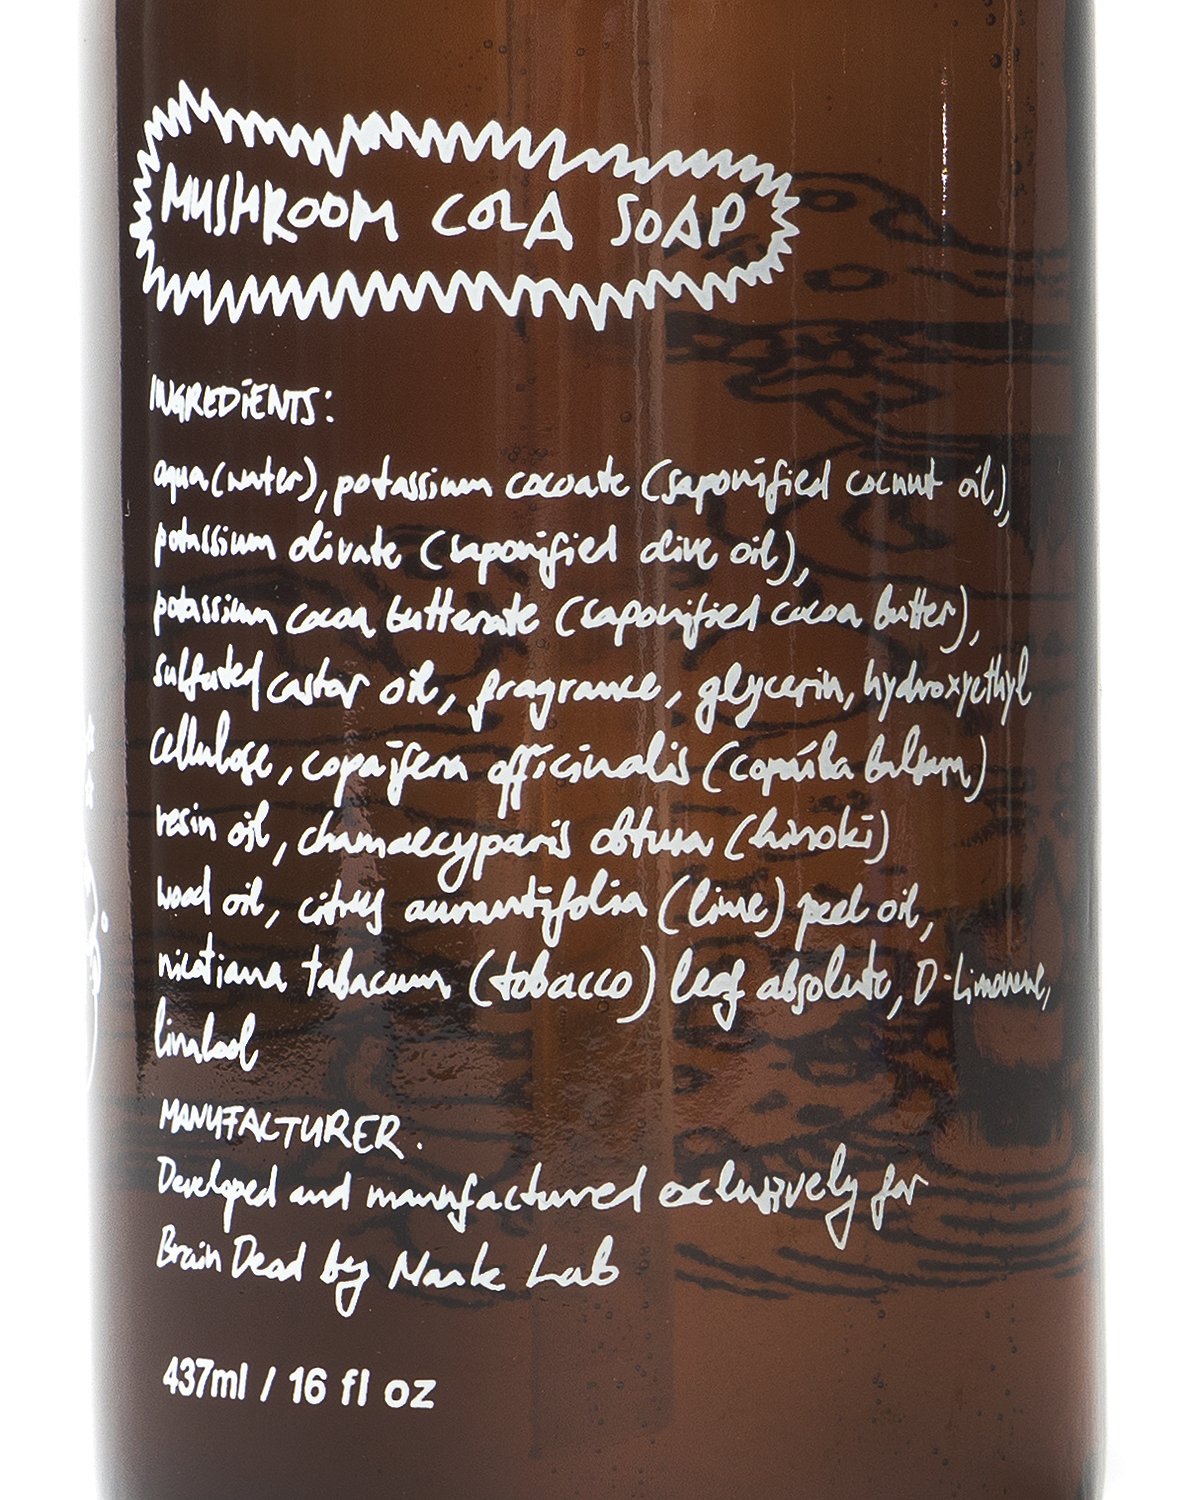 MUSHROOM COLA SOAP
INGREDiENTS:
aqua (water), potassium cocoate (saponified cocnut oil),
potassium olivate (saponified olive oil),
potassium cocoa butterate (saponified cocoa butter),
sulfated castor oil, fragrance, glycerin, hydroxyethyl
cellulose, copaifera officinalis (copaiba balsam)
resin oil, chamaecyparis obtusa (hinoki)
wood oil, citrus aurantifolia (lime) peel oil,
nicotiana tabacum (tobacco) leaf absolute, D-Limonene,
linalool
MANUFACTURER.
Developed and manufactured exclusively for
Brain Dead by Maak Lab
437ml / 16 fl oz